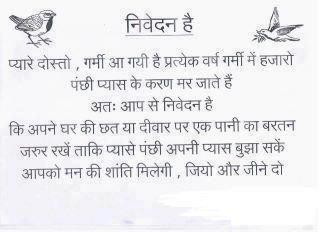 निवेदन है
प्यारे दोस्तो , गर्मी आ गयी है प्रत्येक वर्ष गर्मी में हजारो
पंछी प्यास के करण मर जाते हैं
अतः आप से निवेदन है
कि अपने घर की छत या दीवार पर एक पानी का बरतन
जरुर रखें ताकि प्यासे पंछी अपनी प्यास बुझा सकें
आपको मन की शांति मिलेगी , जियो और जीने दो